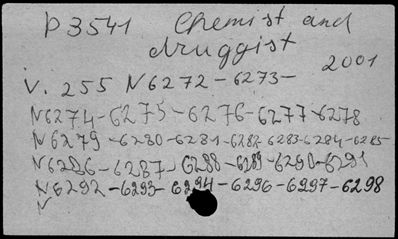 P3541 Chemist and
druggist
2001
V. 255 N6272-6273-
N6274-6275-6276-6277-6278
N6279-6280-6281-6282-6283-6284-6285
N6286-6287-6288-6289-6290-6291
N6292-6293-6294-6296-6297-6298
N